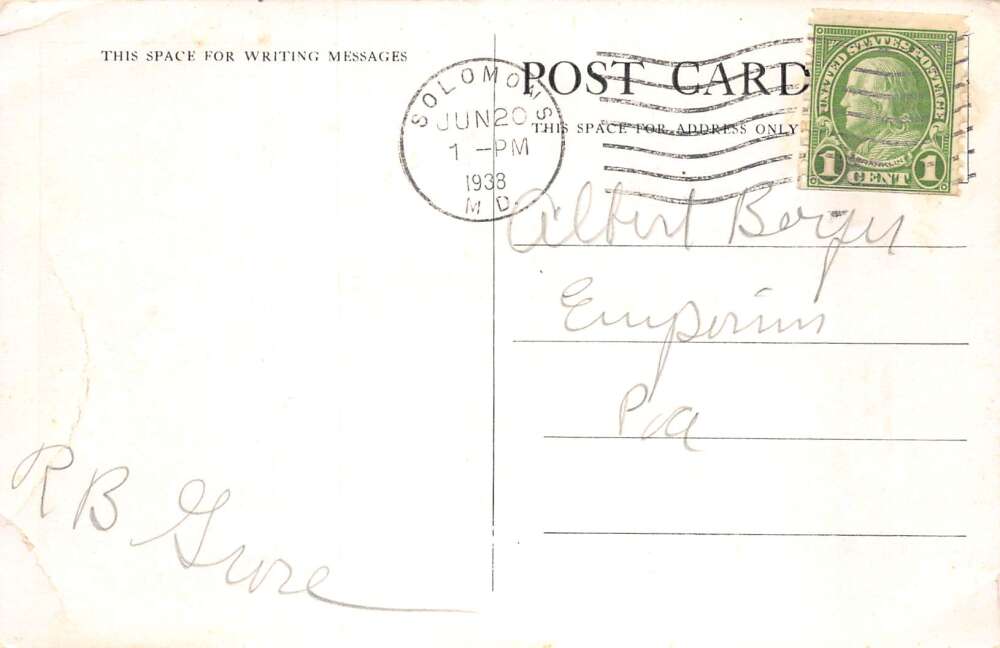 THIS SPACE FOR WRITING MESSAGES
POST CARD
THIS SPACE FOR ADDRESS ONLY
SOLOMONS
JUN 20
1 - PM
1938
MD.
UNITED STATES POSTAGE
FRANKLIN
1 CENT 1
Albert Berger
Emporium
Pa
R B